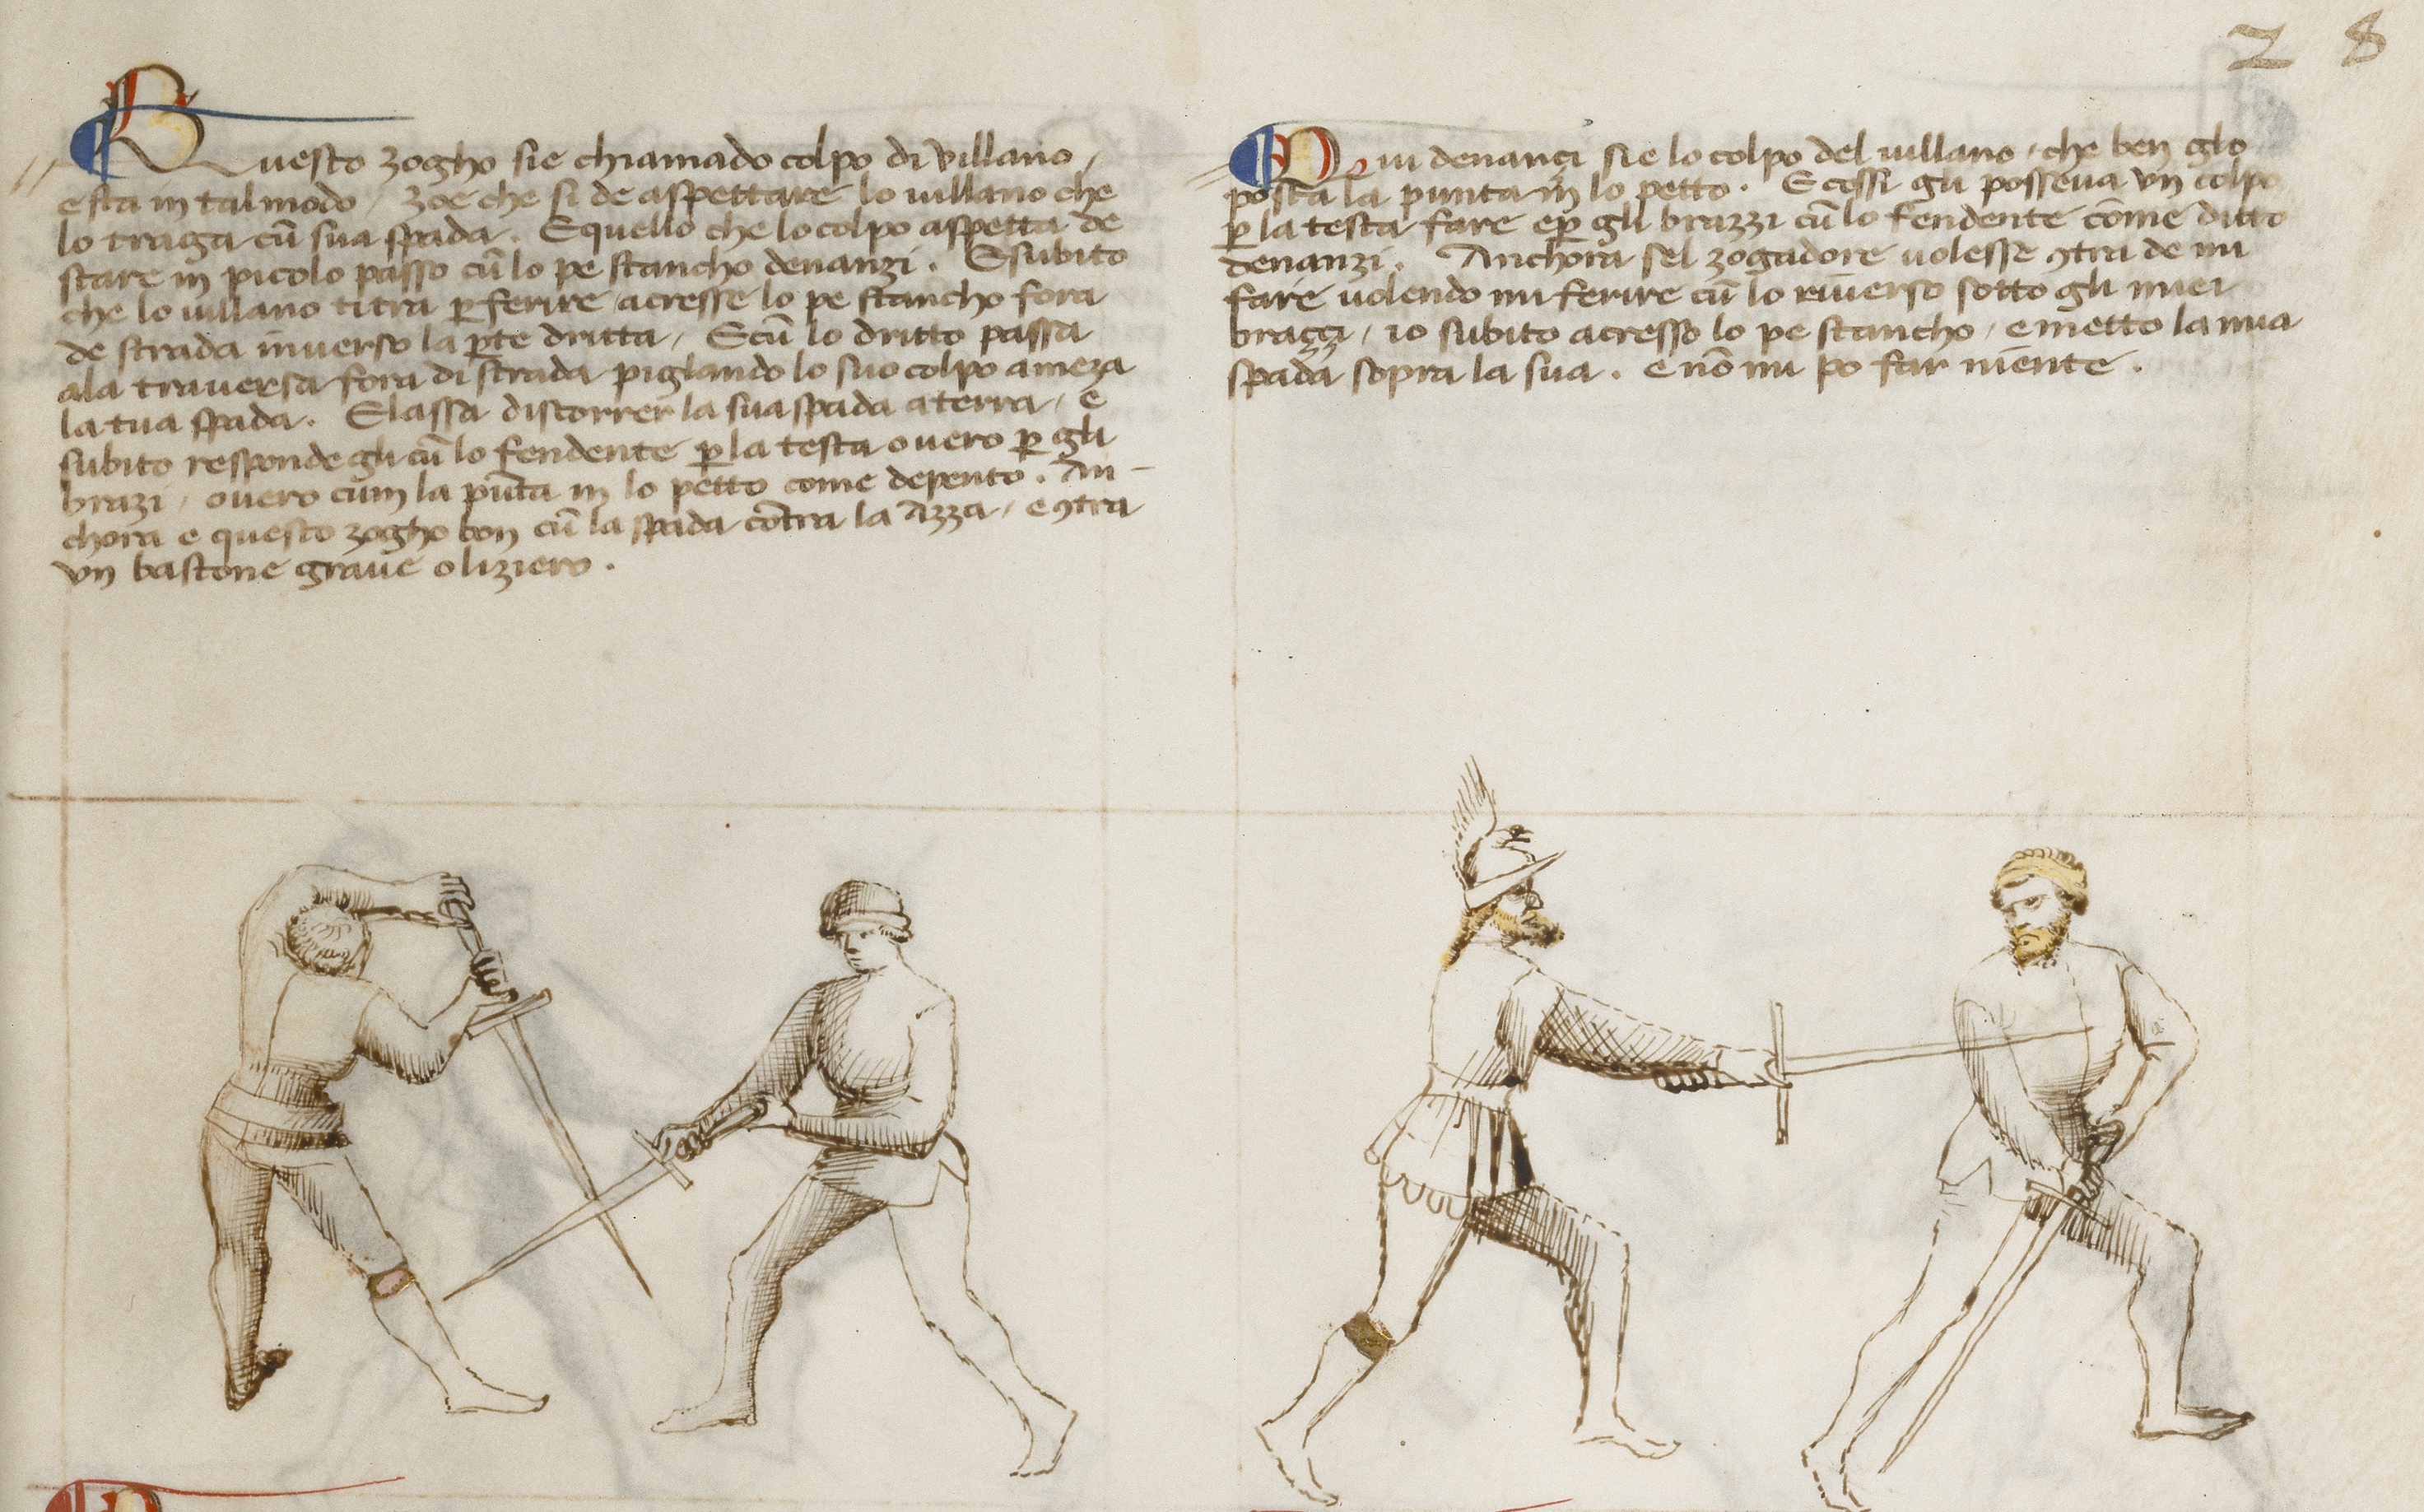 Questo zogho sie chiamado colpo di villano,
e sta in tal modo, zoe che si de aspettare lo villano che
lo traga cū sua spada. E quello che lo colpo aspetta de
stare in picolo passo cū lo pe stancho denanzi. E subito
che lo villano ti tra ꝑ ferire acresse lo pe stancho fora
de strada inverso la ꝑte dritta, E cū lo dritto passa
ala traversa fora di strada piglando lo suo colpo a meza
la tua spada. E lassa discorrer la sua spada a terra, e
subito responde gli cū lo fendente ꝑ la testa overo ꝑ gli
brazi, overo cum la pūta in lo petto come depento. An-
chora e questo zogho bon cū la spada cōtra la Azza, e ꝯtra
vn bastone grave o liziero.
28
Qui denançi sie lo colpo del villano, che ben glo
posta la punta in lo petto. E cossi gli posseva vn colpo
ꝑ la testa fare e ꝑ gli brazzi cū lo fendente cōme ditto
denanzi. Anchora sel zogadore volesse ꝯtra de mi
fare volendo mi ferire cū lo riverso sotto gli miei
braççi, io subito acresso lo pe stancho, e metto la mia
spada sopra la sua. e nō mi po far niente.